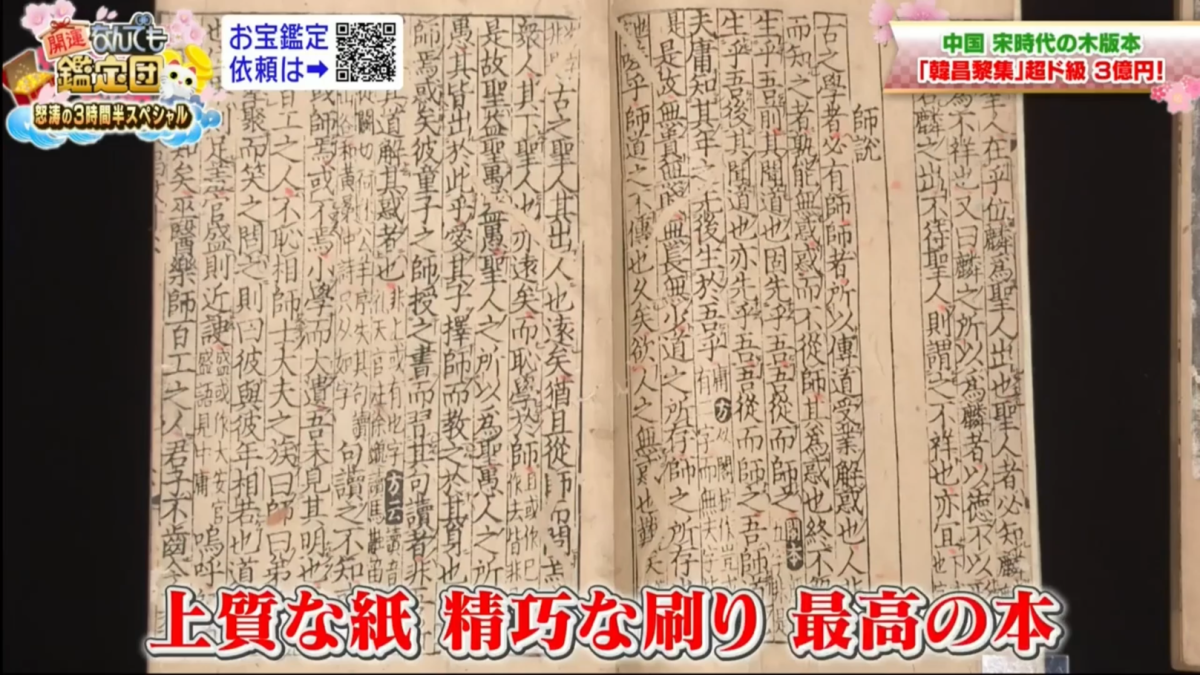 開運なんでも
鑑定団
怒涛の3時間半スペシャル
お宝鑑定
依頼は➡
中国 宋時代の木版本
「韓昌黎集」超ド級 3億円!
人在乎位麟爲聖人出也聖人者必知麟
爲不祥也又曰麟之所以爲麟者以德不以
麟之出不待聖人則謂之不祥也亦宜
師說
古之學者必有師師者所以傳道受業解惑也人
而知之者孰能無惑惑而不從師其爲惑也終不
生乎吾前其聞道也固先乎吾吾從而師之 閣本
生乎吾後其聞道也亦先乎吾吾從而師之吾師
夫庸知其年之先後生於吾乎 方
是故無貴無賤無長無少道之所存師之所存
嗟乎師道之不傳也久矣欲人之無惑也難
古之聖人其出人也遠矣猶且從師而問焉
衆人其下聖人也亦遠矣而恥學於師
是故聖益聖愚益愚聖人之所以爲聖愚人之所
愚其皆出於此乎愛其子擇師而教之於其身也
師焉惑矣彼童子之師授之書而習其句讀者非
其道解其惑者也 方云
句讀之不知
或師焉或不焉小學而大遺吾未見其明也
百工之人不恥相師士大夫之族曰師曰弟
聚而笑之問之則曰彼與彼年相若也道
足羞官盛則近諛 嗚呼
知矣巫醫樂師百工之人君子不齒今
上質な紙 精巧な刷り 最高の本